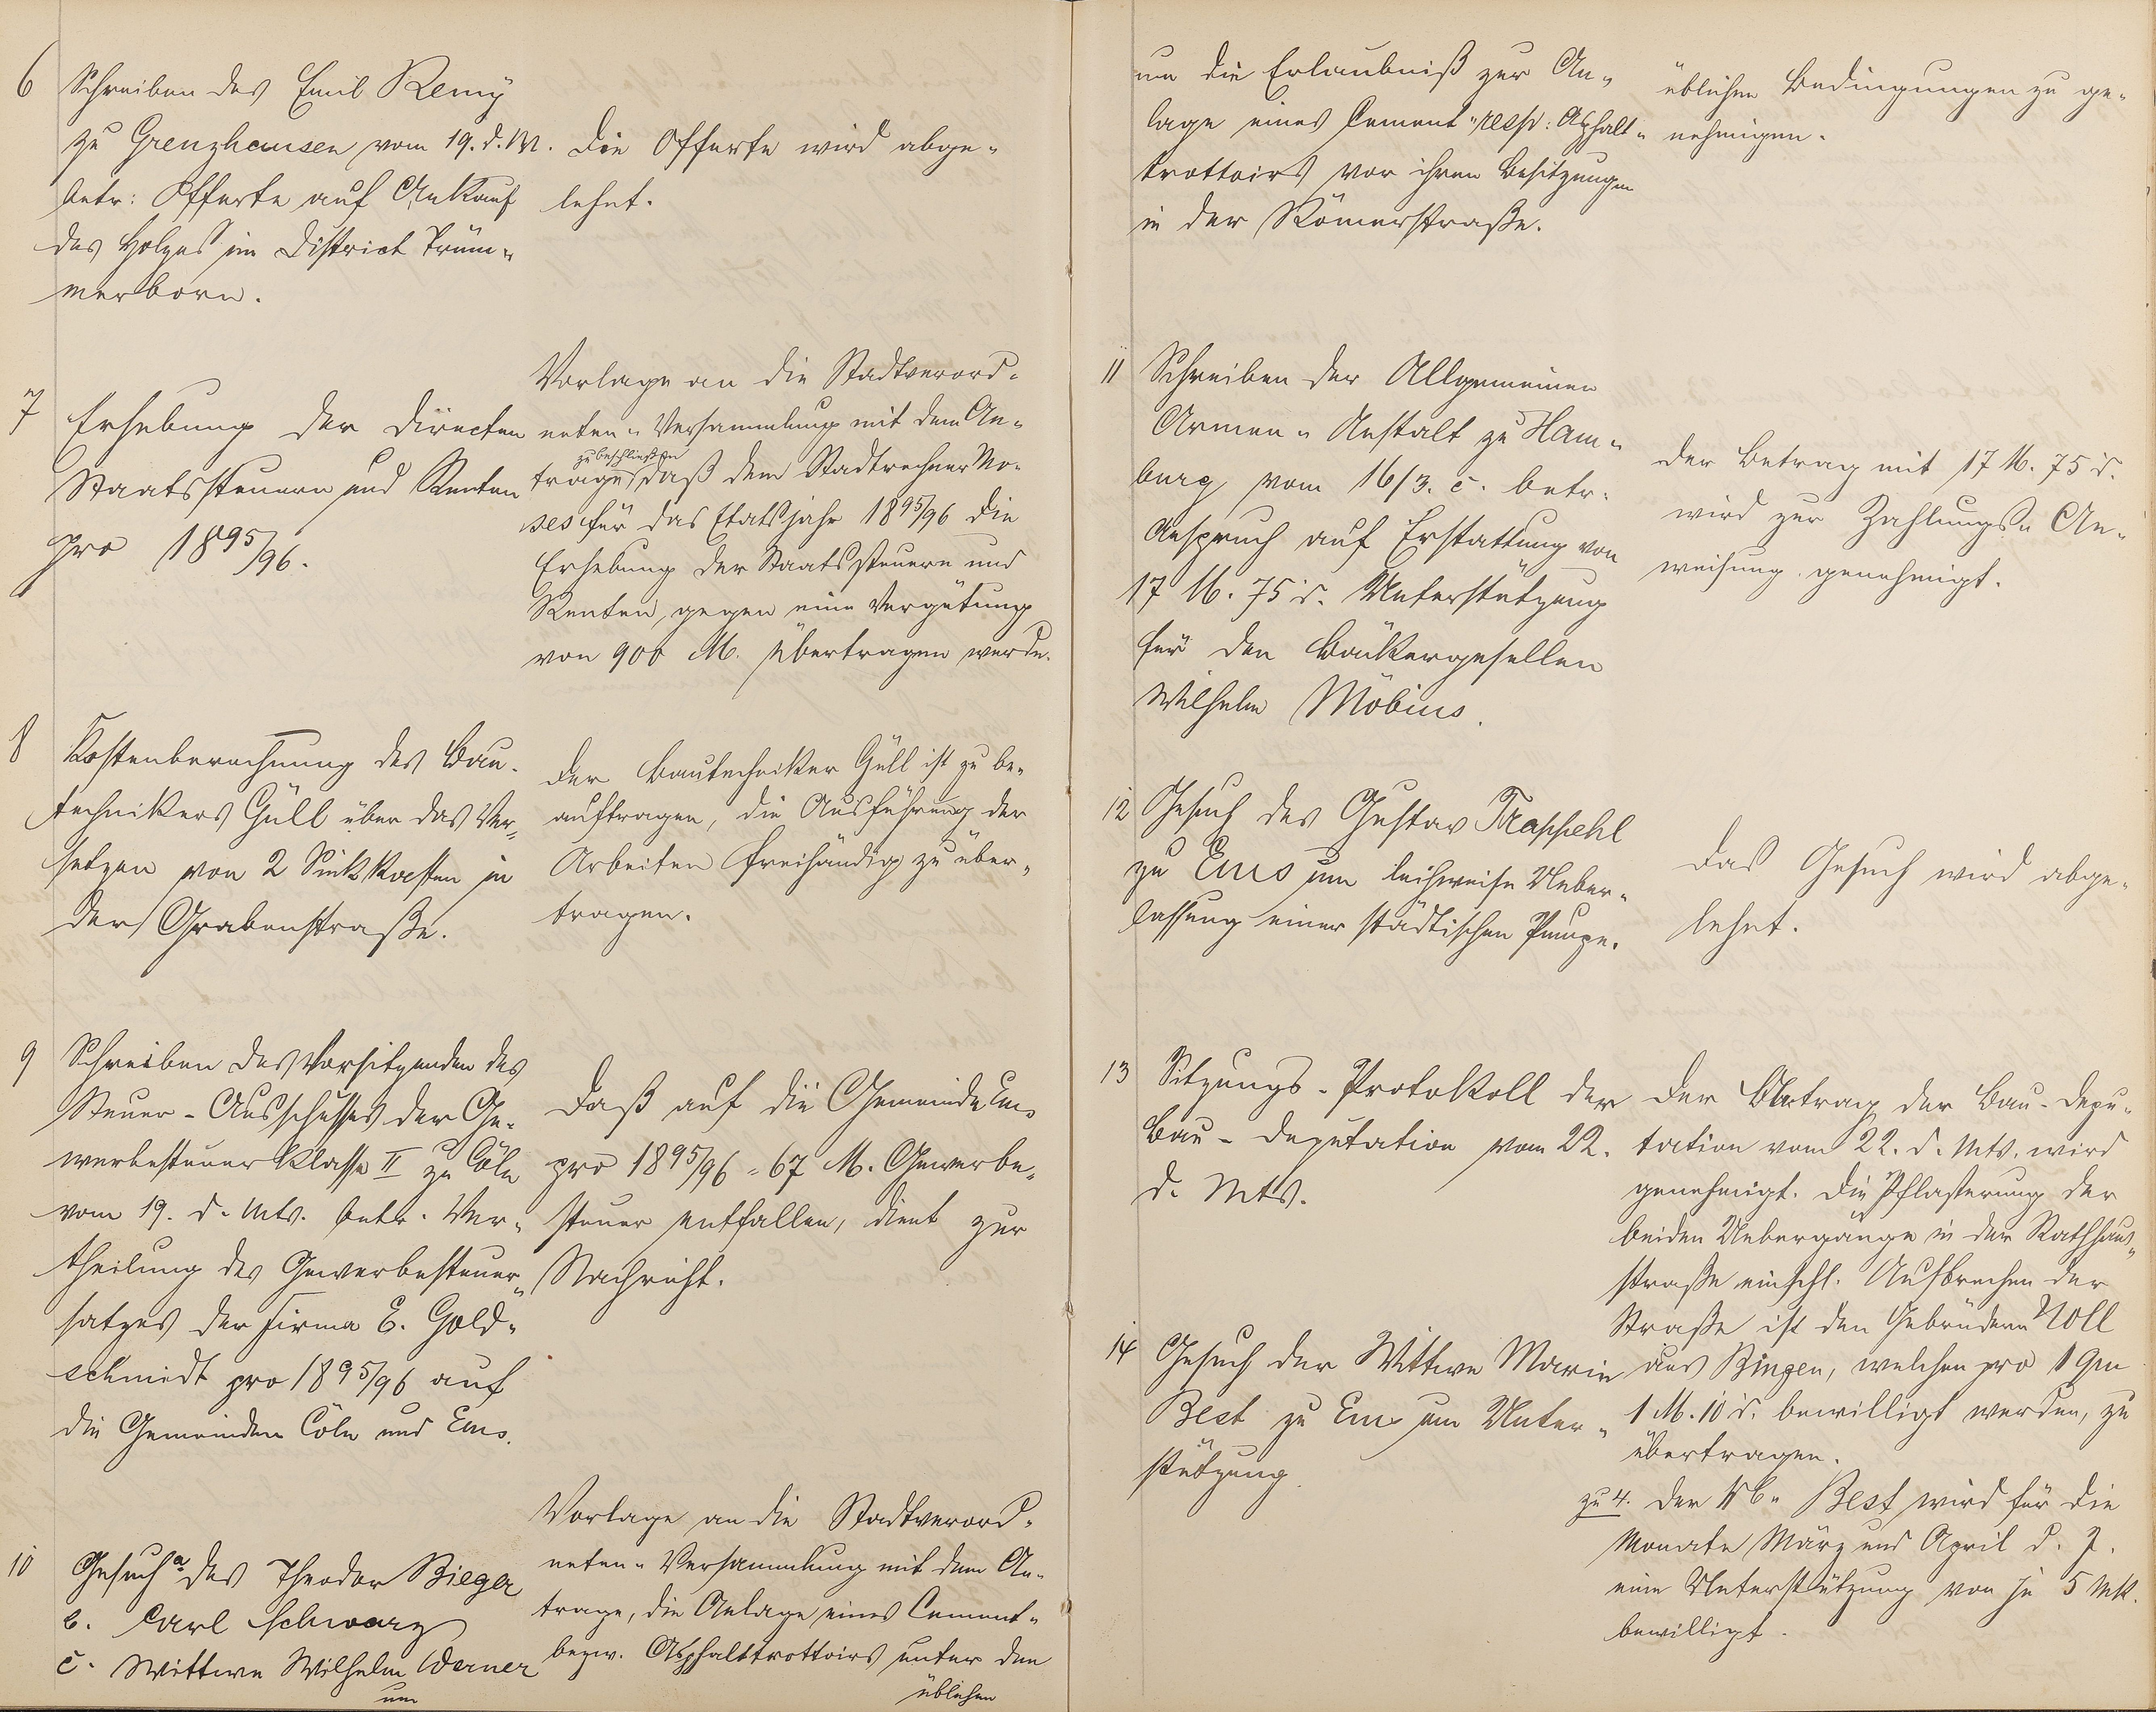 6 Schreiben des Emil Remy
zu Grenzhausen vom 19. d. M.
betr: Offerte auf Ankauf
des Holzes im District Trüm-
merborn.
Die Offerte wird abge-
lehnt.
7 Erhebung der directen
Staatssteuern und Renten
pro 1895/96.
Vorlage an die Stadtverord-
neten-Versammlung mit dem An-
trage zu beschließen, daß dem Stadtrechner Mo-
ses für das Etatsjahr 1895/96 die
Erhebung der Staatssteuern und
Renten, gegen eine Vergütung
von 900 M. übertragen werde.
8 Kostenberechnung des Bau-
technikers Güll über das Ver-
setzen von 2 Sinkkasten in
der Grabenstraße.
Der Bautechniker Güll ist zu be-
auftragen, die Ausführung der
Arbeiten freihändig zu über-
tragen.
9 Schreiben des Vorsitzenden des
Steuer-Ausschusses der Ge-
werbesteuerklasse II zu Cöln
vom 19. d. Mts. betr. Ver-
theilung des Gewerbesteuer-
satzes der Firma E. Gold-
schmidt pro 1895/96 auf
die Gemeinden Cöln und Ems.
Daß auf die Gemeinde Ems
pro 1895/96 = 67 M. Gewerbe-
steuer entfallen, dient zur
Nachricht.
10 Gesuch a des Theodor Bieger
b. Carl Schwarz
c. Wittwe Wilhelm Werner
um
Vorlage an die Stadtverord-
neten-Versammlung mit dem An-
trage, die Anlage eines Cement-
bezw. Asphalttrottoirs unter den
üblichen
um die Erlaubniß zur An-
lage eines Cement- resp: Asphalt-
trottoirs vor ihren Besitzungen
in der Römerstraße.
üblichen Bedingungen zu ge-
nehmigen.
11 Schreiben der Allgemeinen
Armen-Anstalt zu Ham-
burg vom 16/3. c. betr.
Anspruch auf Erstattung von
17 M. 75 d. Unterstützung
für den Bäckergesellen
Wilhelm Möbius.
Der Betrag mit 17 M. 75 d.
wird zur Zahlungs-An-
weisung genehmigt.
12 Gesuch des Gustav Trappehl
zu Ems um leihweise Ueber-
lassung einer städtischen Pumpe.
Das Gesuch wird abge-
lehnt.
13 Sitzungs-Protokoll der
Bau-Deputation vom 22.
d. Mts.
Der Antrag der Bau-Depu-
tation vom 22. d. Mts. wird
genehmigt. Die Pflasterung der
beiden Uebergänge in der Rathhaus-
straße einschl. Aufbrechen der
Straße ist den Gebrüdern Noll
aus Bingen, welchen pro 1 qm
1 M. 10 d. bewilligt werden, zu
übertragen.
14 Gesuch der Wittwe Marie
Best zu Ems um Unter-
stützung
zu 4. Der Wb. Best wird für die
Monate März und April d. J.
eine Unterstützung von je 5 Mk.
bewilligt.